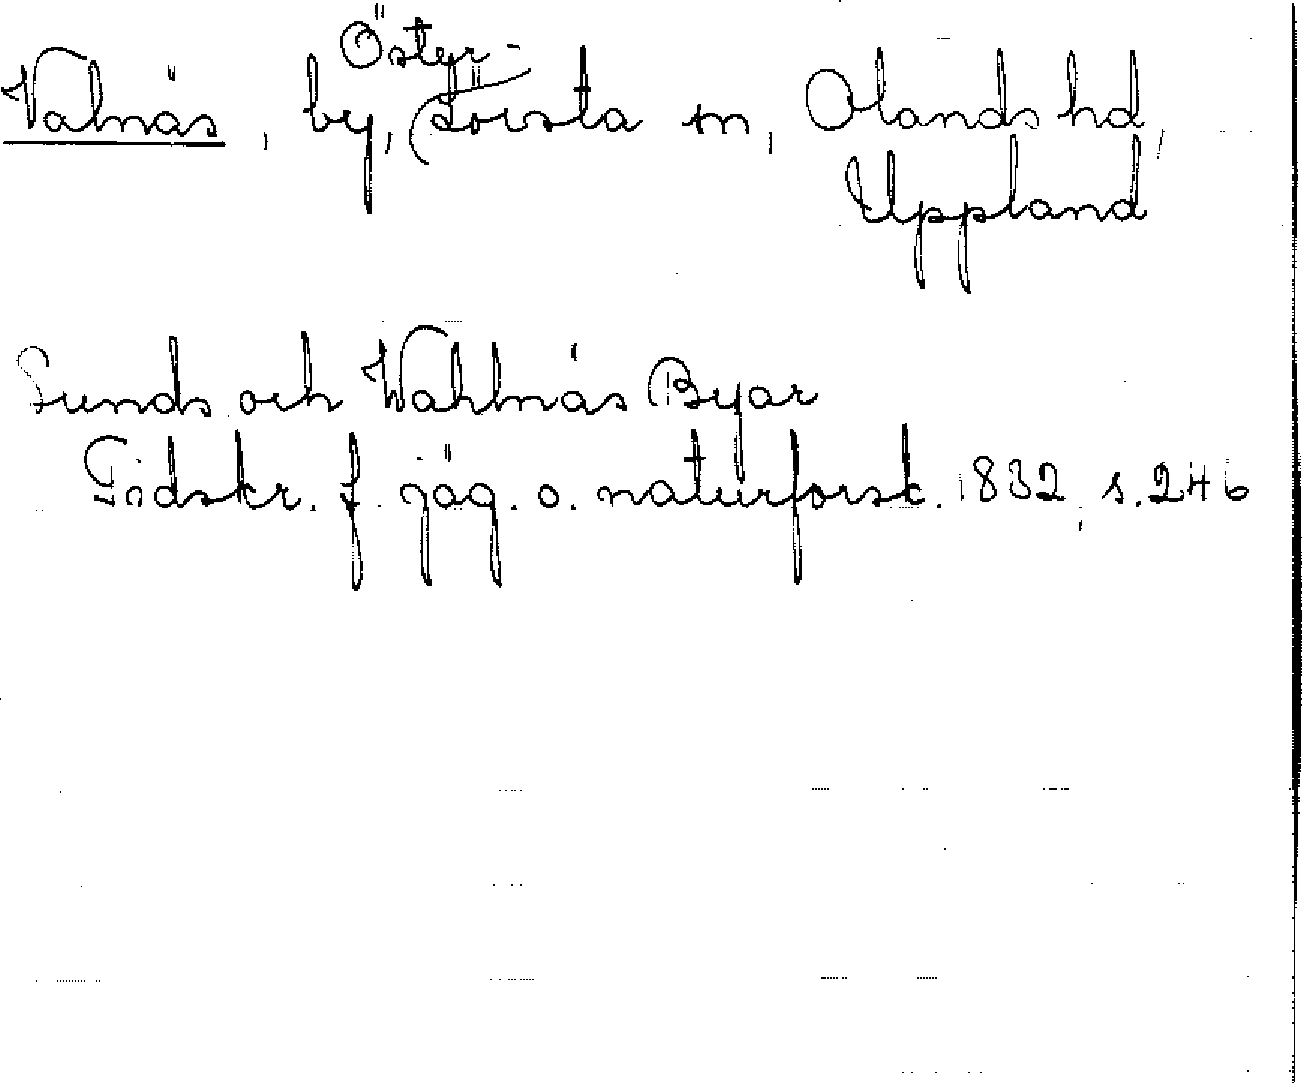 Öster-
Valnäs, by, Lövsta sn, Olands hd,
Uppland
Sunds och Wahlnäs Byar
Tidskr. f. jäg. o. naturforsk. 1832, s. 246